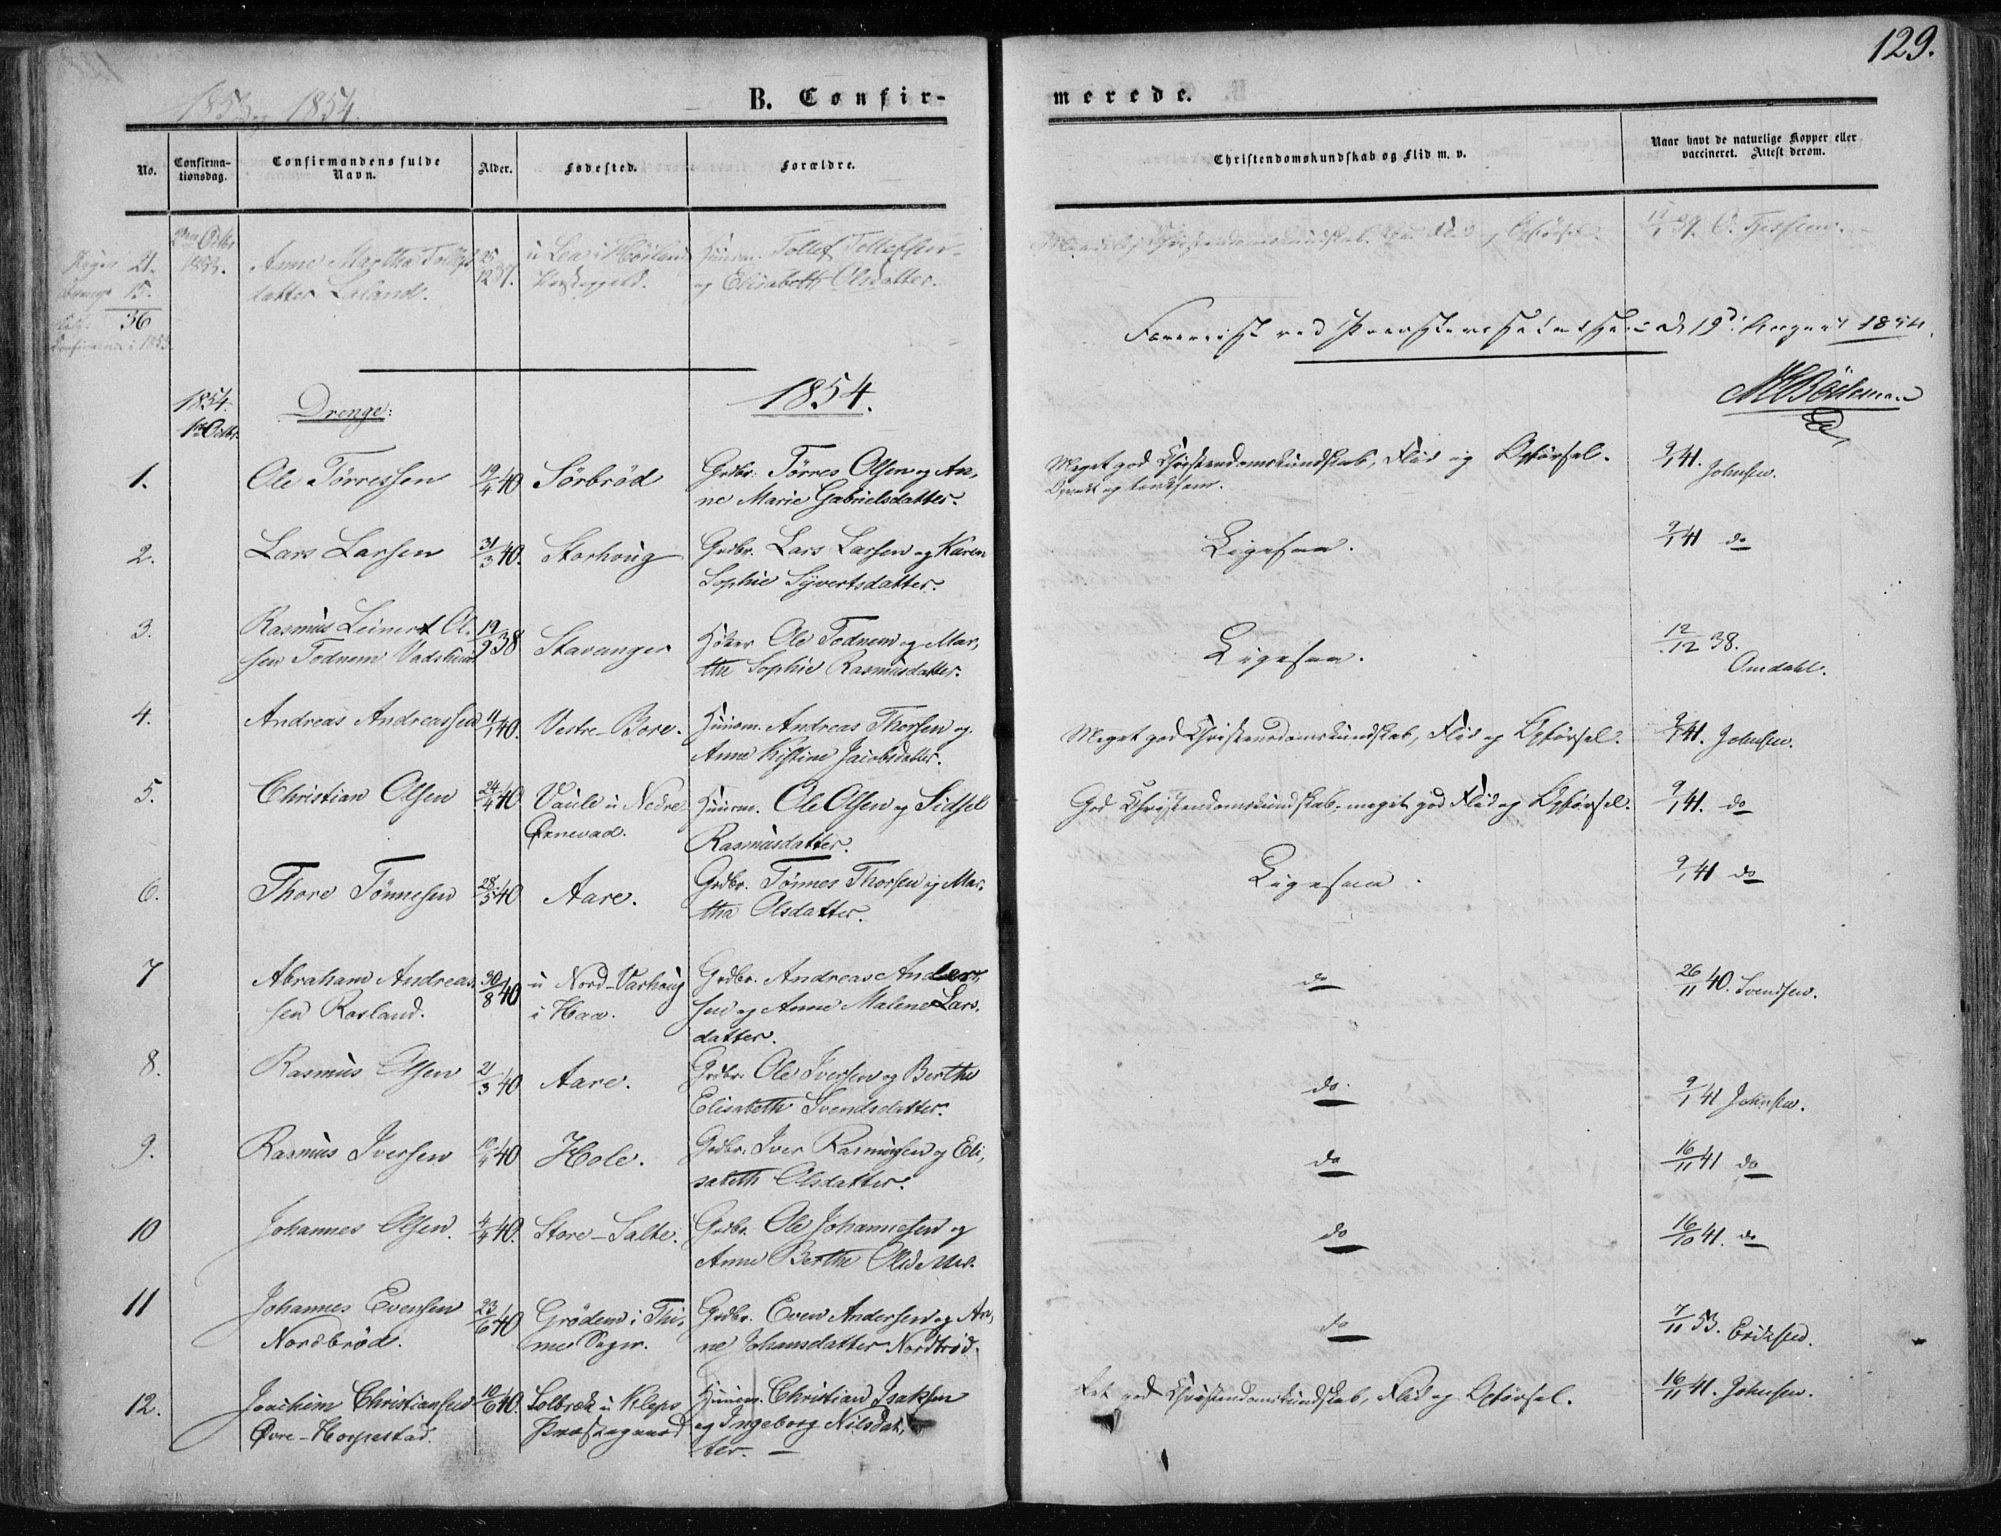 129.
1853 og 1854.
B. Confir-
merede.
No.
Confirma-
tionsdag.
Confirmandens fulde
Navn.
Alder.
Fødested.
Forældre.
Christendomskundskab og Flid m. v.
Naar havt de naturlige Kopper eller
vaccineret. Attest derom.
21.
15.
36
Octbr
1853.
Anne Martha Tollefs
datter Leland.
25/12 37.
u Lea i Høiland
Præstegjeld.
Huusm. Tollef Tollefsen
og Elisabeth Olsdatter.
Christendomskundskab, Flid og Opførsel.
39. O. Tjessem.
Foreviist ved Provstevisitatsen d 19d August 1854.
1854.
1ste Octbr.
Drenge:
1854.
1.
Ole Tørressen
19/4 40
Sörbröd
Grdbr. Törres Olsen og An-
ne Marie Gabrielsdatter.
Meget god Christendomskundskab, Flid og Opførsel.
9/1 41. Johnsen.
2.
Lars Larsen
31/3 40.
Storhoug
Grdbr. Lars Larsen og Karen
Sophie Syvertsdatter.
Ligesaa.
9/1 41 do
3.
Rasmus Leinert Ol-
sen Todnem Vadskin
19/9 38
Stavanger
Ole Todnem og Mar-
tha Sophie Rasmusdatter.
Ligesaa.
12/12 38.
Omdahl.
4.
Andreas Andreassen
11/1 40.
Vestre-Bore.
Huusm. Andreas Thorsen og
Anna Kistine Jacobsdatter.
Meget god Christendomskundskab, Flid og Opførsel.
9/1 41. Johnsen.
5.
Christian Olsen
24/4 40
Vaule u Nedre
Øxnevad.
Huusm. Ole Olsen og Sidsel
Rasmusdatter.
God Christendomskundskab, meget god Flid og Opførsel.
9/1 41. do
6.
Thore Tönnesen
28/5 40
Aare.
Grdbr. Tönnes Thorsen og Mar-
tha Olsdatter.
Ligesaa.
9/1 41 do
7
Abraham Andreas-
sen Rosland.
30/8 40
u Nord-Varhoug
i Haa.
Grdbr. Andreas Ander-
sen og Anne Malene Lars-
datter.
do
26/11 40. Svendsen.
8.
Rasmus Olsen
21/3 40
Aare.
Grdbr. Ole Iversen og Berthe
Elisabeth Svendsdatter.
do
9/1 41 Johnsen.
9.
Rasmus Iversen
10/4 40
Hole.
Grdbr. Iver Rasmusen og Eli-
sabeth Olsdatter.
do
16/11 41 do
10
Johannes Olsen.
4/4 40.
Store-Salte.
Grdbr. Ole Johannesen og
Anne Berthe
do
16/10 41. do
11
Johannes Evensen
Nordbröd.
23/6 40
Gröden i Thi-
me Sogn.
Grdbr. Even Andersen og An-
ne Johansdatter Nordbröd.
do
7/11 53. Eriksen.
12.
Joachim Christiansen
Øvre-Horpestad.
10/6 40.
Solbræk u Kleps
Præstegaard
Huusm. Christian Isaksen
og Ingeborg Nilsdat-
ter.
god Christendomskundskab, Flid og Opførsel.
16/11 41. Johnsen.